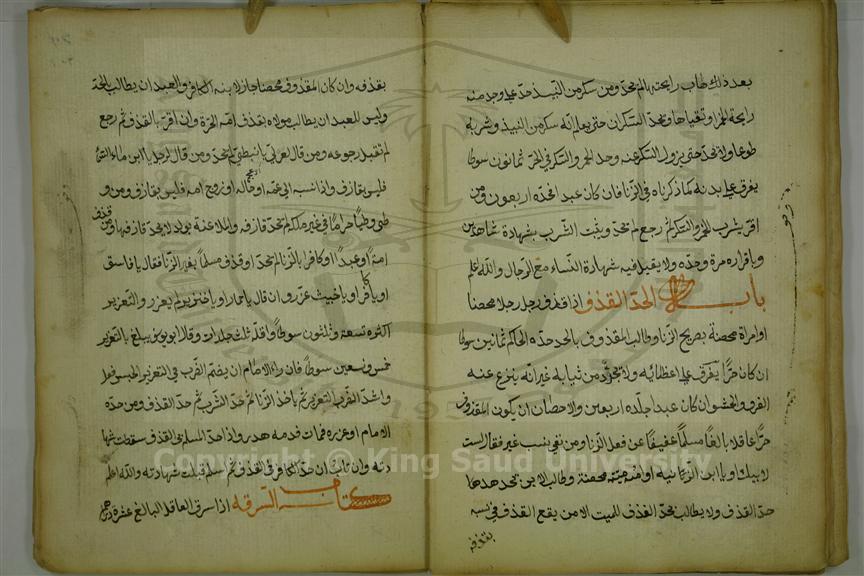 بعد ذلك هاب رايحته بالم يحد ومن سكر من النبيذ حد على وجد منه
رايحة الخمر او تقياها ولا يحد السكران حتى يعلم انه سكر من النبيذ وشربه
طوعا ولا يحد حتى يزول السكر عنه وحد الخمر والسكر في الحر ثمانون سوطا
يفرق على بدنه كما ذكرناه في الزنا فان كان عبدا فحده اربعون ومن
اقر بشرب الخمر والسكر ثم رجع لم يحد ويثبت الشرب بشهادة شاهدين
وباقراره مرة وحده ولا يقبل فيه شهادة النساء مع الرجال والله اعلم
باب الحد القذف اذا قذف رجل رجلا محصنا
او امراة محصنة بصريح الزنا وطالب المقذوف بالحد حده الحاكم ثمانين سوطا
ان كان حرا يفرق على اعظائه ولا يجرد من ثيابه غير انه ينزع عنه
الفرو والحشو ان كان عبدا جلده اربعين والاحصان ان يكون المقذوف
حرا عاقلا بالغا مسلما عفيفا عن فعل الزنا ومن نفى بنسب غير فقال است
لابيك او يا ابن الزانيه او امه ميتة محصنة وطالب الابن بحدها
حد القذف ولا يطالب بحد القذف للميت الا من يقع القذف في نسبه
بقذفه
بقذفه وان كان المقذوف محصنا جاز لابنه الكافر والعبد ان يطالب بالحد
وليس للعبد ان يطالب مولاه بقذف امه الحرة وان اقر بالقذف ثم رجع
لم تقبل رجوعه ومن قال لعربي يا نبطي لم يحد ومن قال لرجل يا ابن ماء السماء
فليس بقازف واذا نسبه الى عمه او خاله او زوج امه فليس بقازف ومن و
طي وطيا حراما في غير ملكه لم يحد قازفه والملاعنة بولد لا يحد قازفها ومن قذف
امة او عبدا او كافرا بالزنا لم يحد او قذف مسلما بغير الزنا فقال يا فاسق
او يا كافر او يا خبيث عزر وان قال يا حمار او يا خنزير لم يعزر والتعزير
اكثره تسعة وثلثون سوطا واقله ثلث جلدات وقال ابو يوسف يبلغ بالتعزير
خمس وسبعين سوطا فان راء الامام ان يضم الضرب في التعزير الحبس فعل
واشد الضرب التعزير ثم حد الزنا ثم حد الشرب ثم حد القذف ومن حده
الامام او عزره فمات فدمه هدر واذا حد المسلم بي القذف سقطت شها
دته وان تاب ان حد الكافر في القذف ثم اسلم قبلت شهادته والله اعلم
كتاب السرقه اذا سرق العاقل البالغ عشرة دراهم
Copyright © King Saud University